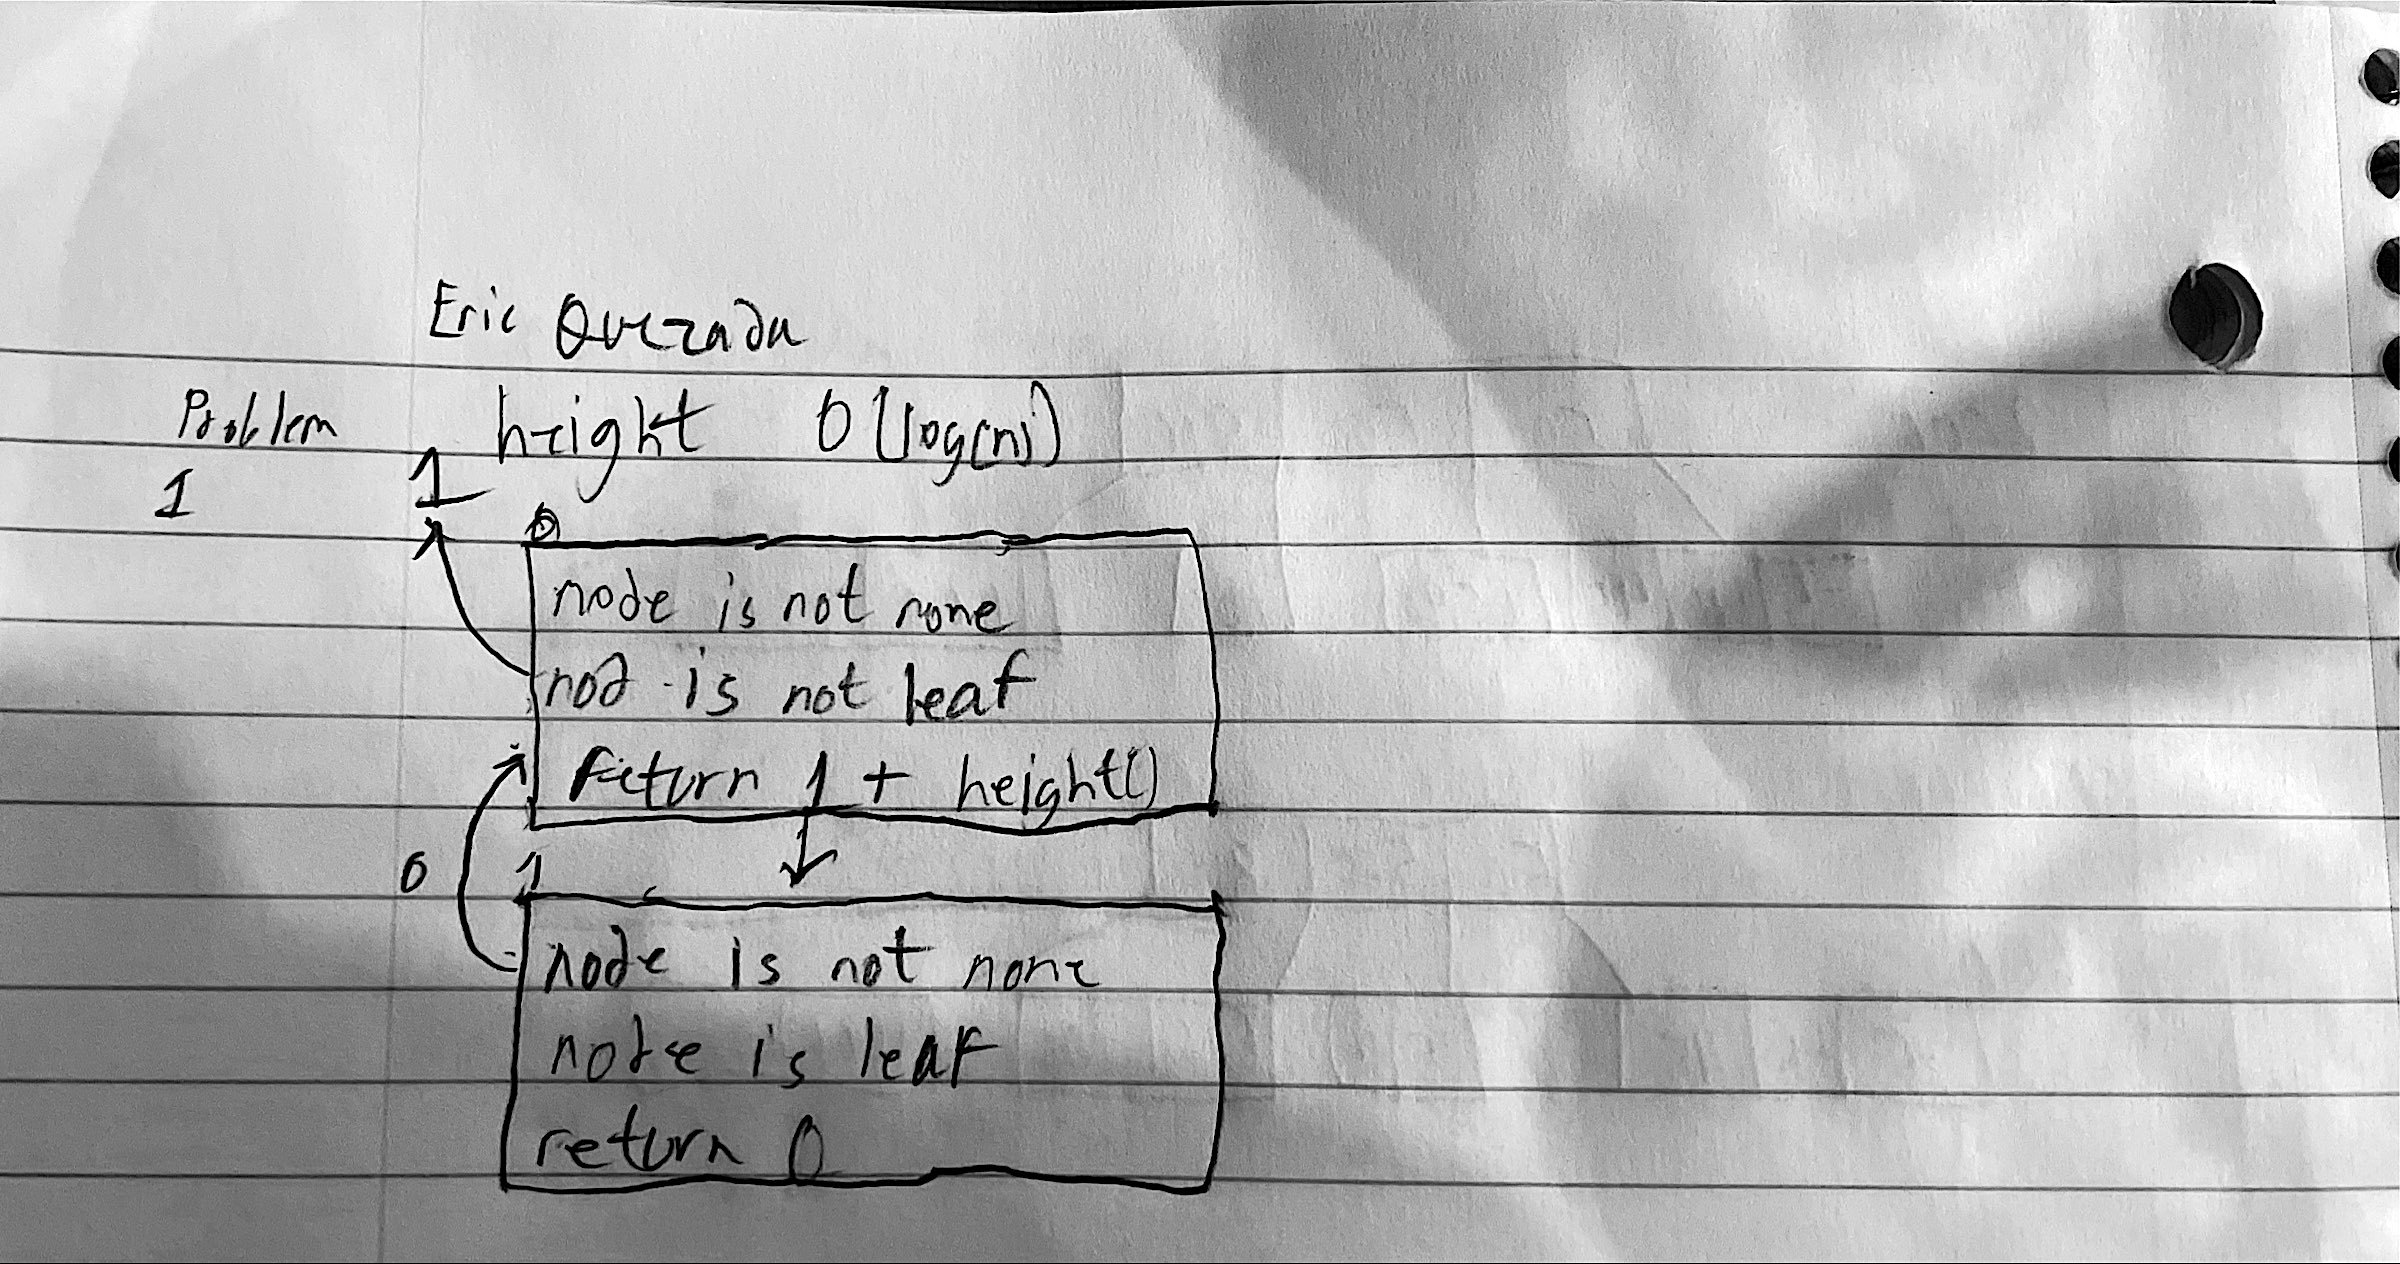 Eric Quezada
Problem height O(log(n))
1 1
0
node is not none
nod is not leaf
return 1 + height()
0 1
node is not none
node is leaf
return 0